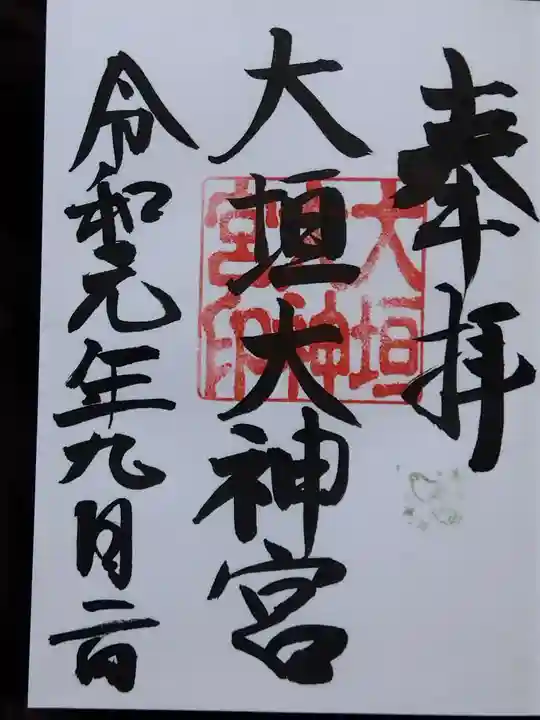 奉拝
大垣大神宮
大垣大神宮印
令和元年九月二日